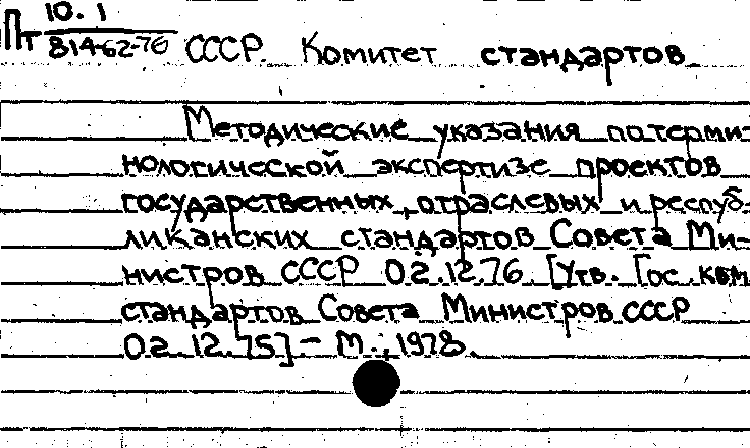 Пт 10.1
814-62-76 СССР. Комитет стандартов
Методические указания по терми-
нологической экспертизе проектов
государственных, отраслевых и респуб-
ликанских стандартов Совета Ми-
нистров СССР 02.12.76 [Утв. Гос. ком
стандартов Совета Министров СССР
02.12.75] – М., 1978.